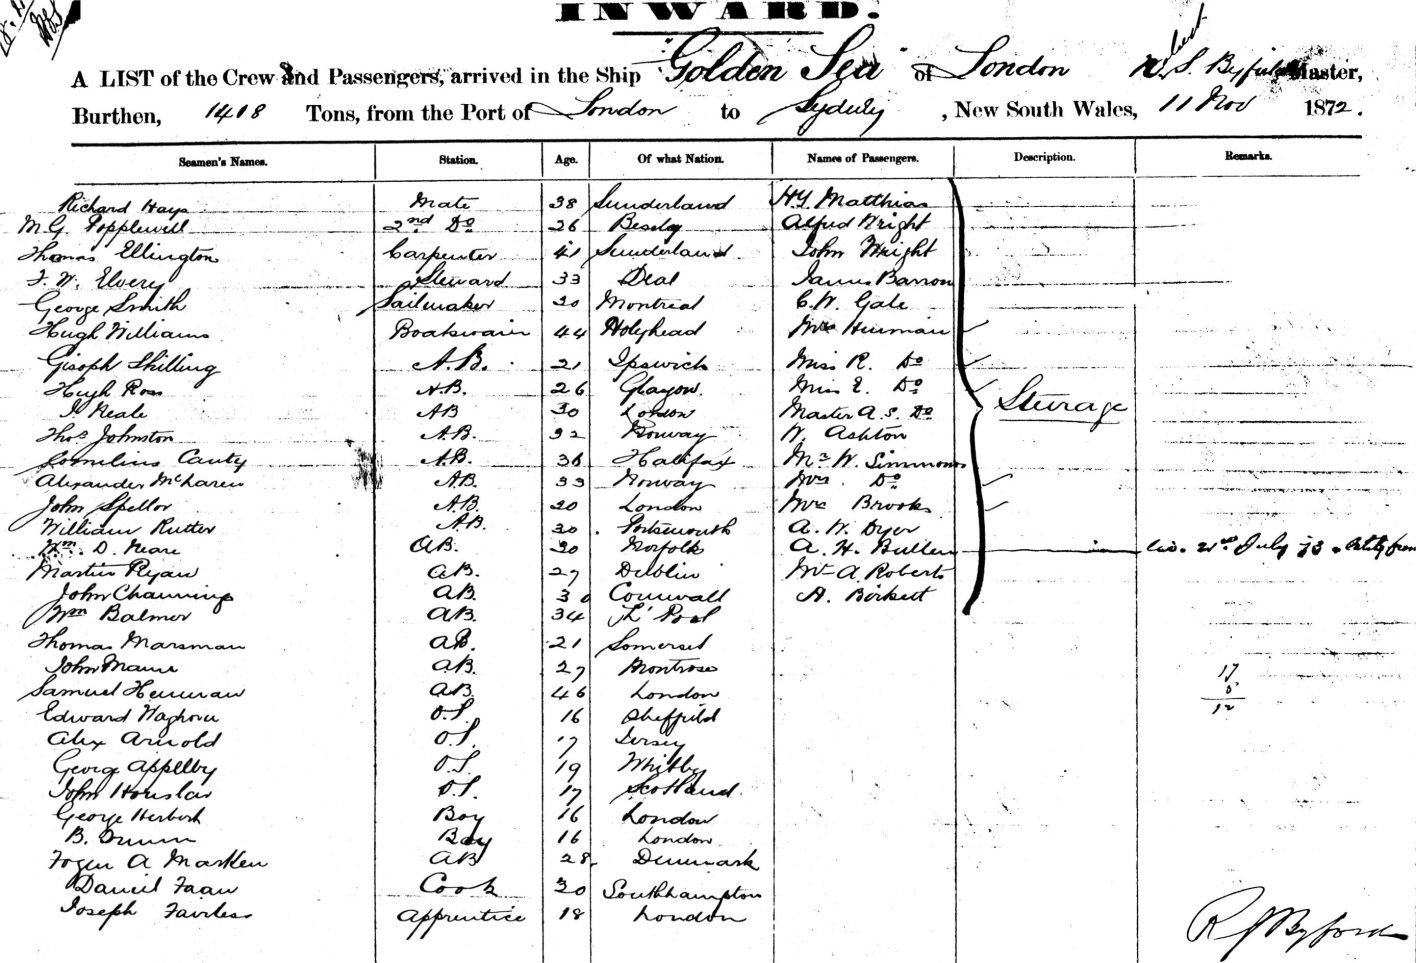 INWARD.
A LIST of the Crew and Passengers, arrived in the Ship "Golden Sea" of London R. S. Byford Master,
Burthen, 1418 Tons, from the Port of London to Sydney, New South Wales, 11 Nov 1872.
Seamen's Names. Station. Age. Of what Nation. Names of Passengers. Description. Remarks.
Richard Hays Mate 38 Sunderland H Y Matthias
M. G. Popplewell 2nd Do 26 Alfred Wright
Thomas Ellington Carpenter 41 Sunderland John Wright
F. W. Elvery Steward 33 Deal James Barron
George Smith Sailmaker 20 Montreal C. W. Gale
Hugh Williams Boatswain 44 Holyhead Mrs Hinman
Shilling A.B. 21 Ipswich Miss R. Do
Hugh Ross A.B. 26 Glasgow Miss E. Do
J. Neale AB 30 London Master A. S. Do Steerage
Thos Johnston A.B. 32 Norway W. Ashton
Cornelius Canty A.B. 36 Halifax Mr W. Simmons
Alexander McLaren A.B. 33 Norway Mrs. Do
John Spellor A.B. 20 London Mrs Brooks
William Rutter A.B. 30 Portsmouth A. W. Dyer
Wm. D. Neare AB. 30 Norfolk A. H. Bullen 21st July 73
Martin Ryan AB. 27 Dublin Mr A Roberts
John Channing AB. 30 Cornwall A. Birkett
Wm Balmer AB. 34 L'Pool
Thomas Marsman AB. 21 Somerset
John AB. 27 Montrose 17
Samuel Henman AB. 46 London 5
Edward Waghorn O.S. 16 Sheffield 12
Alex Arnold O.S. 17 Jersey
Georg Appelby O.S. 19 Whitby
John O.S. 17 Scotland
George Herbert Boy 16 London
B. Boy 16 London
A Marklen AB 28 Denmark
Daniel Faan Cook 30 Southhampton
Joseph Fairless Apprentice 18 London
R S Byford